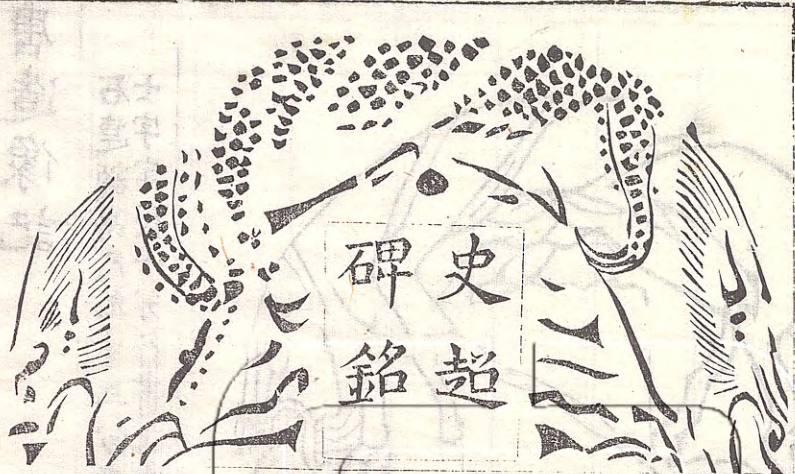 史超
碑銘